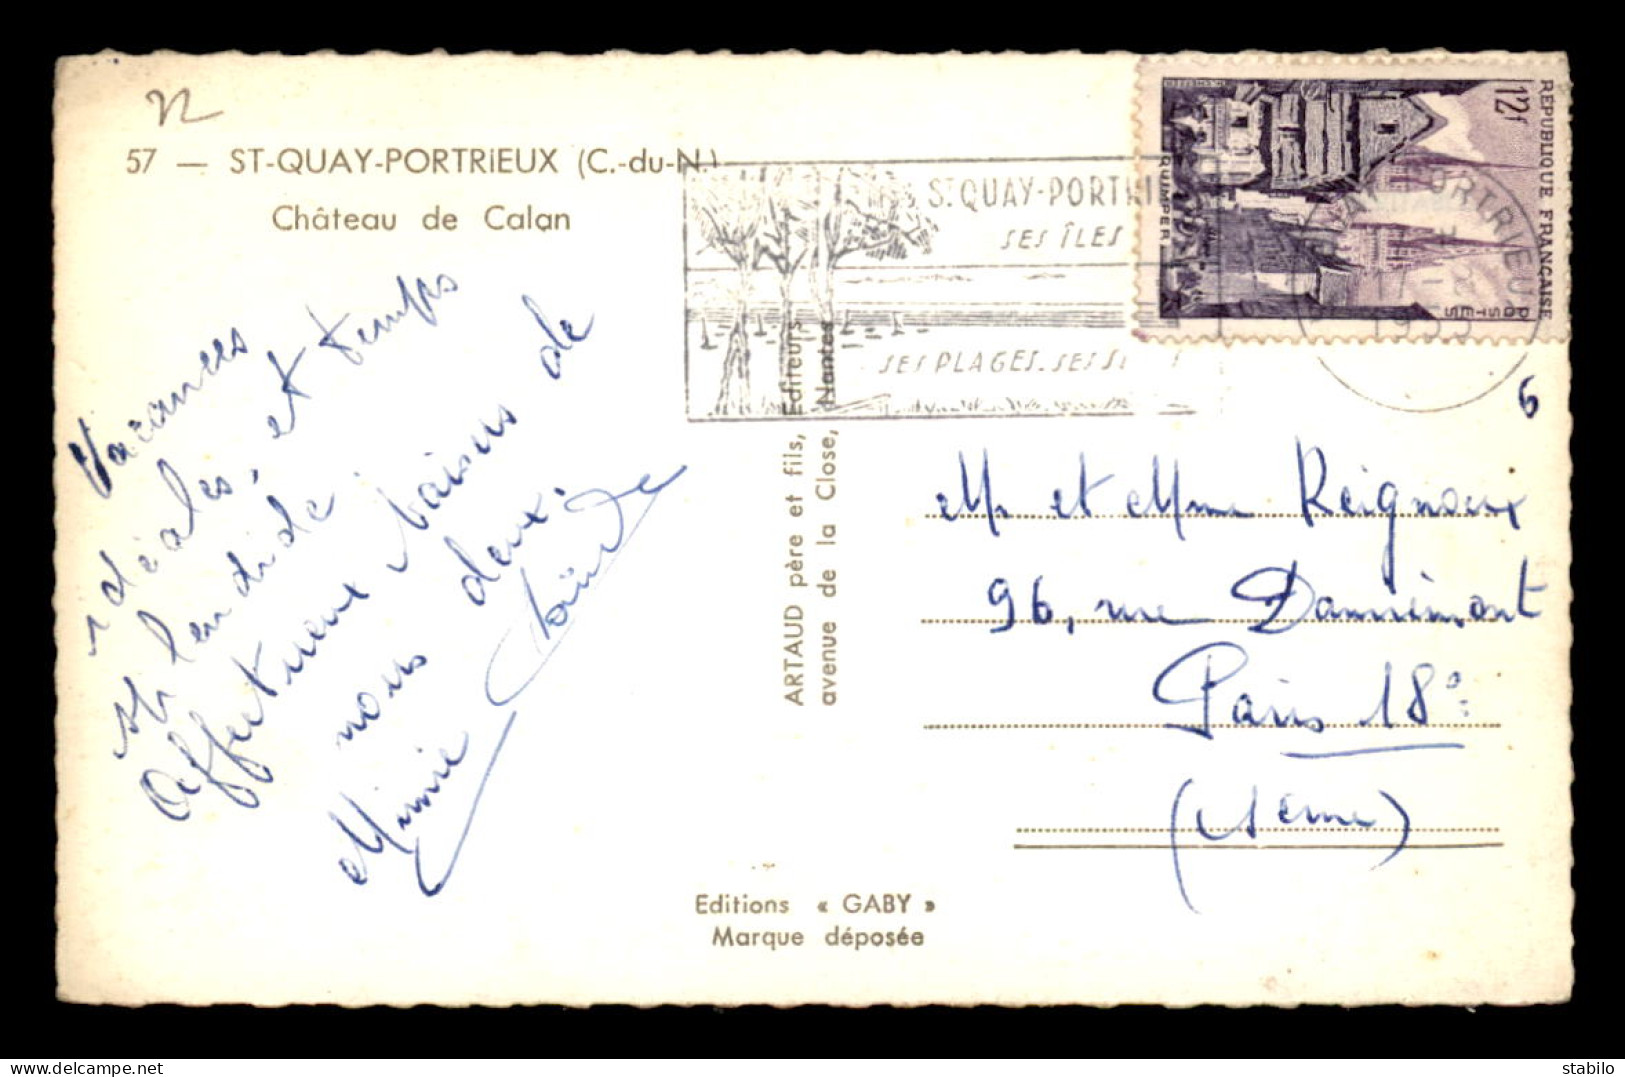 57 — ST-QUAY-PORTRIEUX (C.-du-N.)
Château de Calan
Vacances
idéales, et temps
splendide
Affectueux baisers de
nous deux.
Mimie
ARTAUD père et fils, Editeurs
avenue de la Close, Nantes
Editions « GABY »
Marque déposée
St QUAY-PORTRI
SES ÎLES
SES PLAGES. SES S
12f
REPUBLIQUE FRANÇAISE
POSTES
QUIMPER
PORTRIEUX
6
Mr et Mme Reignoux
96, rue Damrémont
Paris 18e
(Seine)